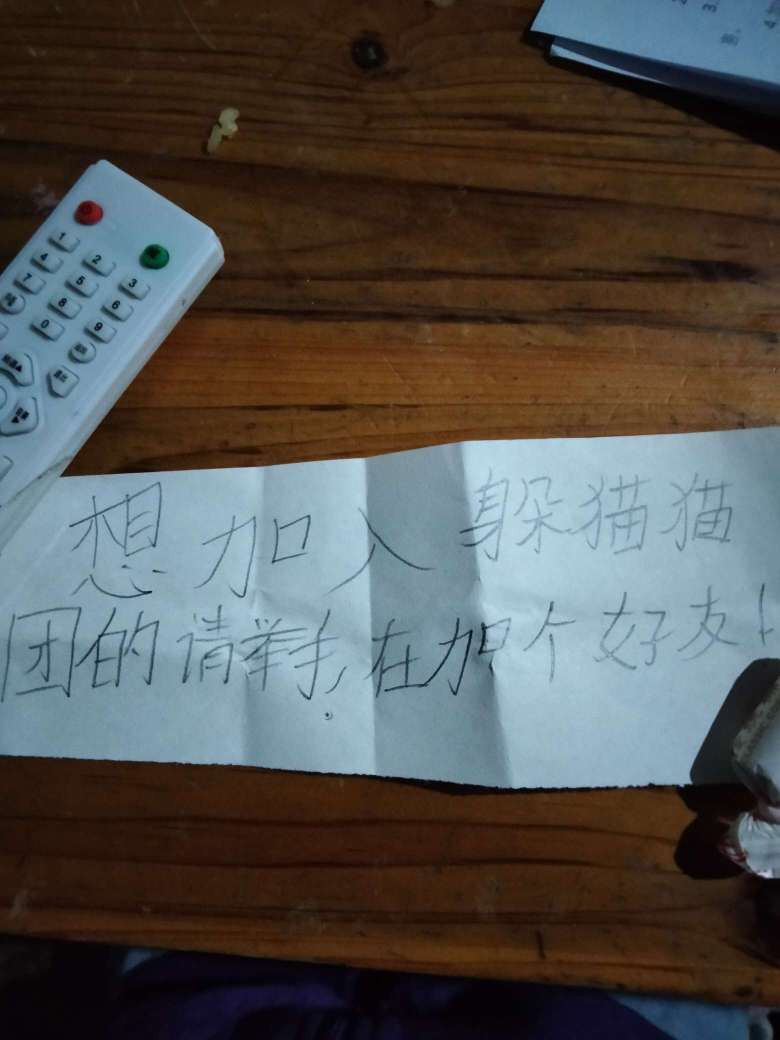 想加入躲猫猫
团的请举手,在加个好友!
1
2
3
4
5
6
7
8
9
0
3.